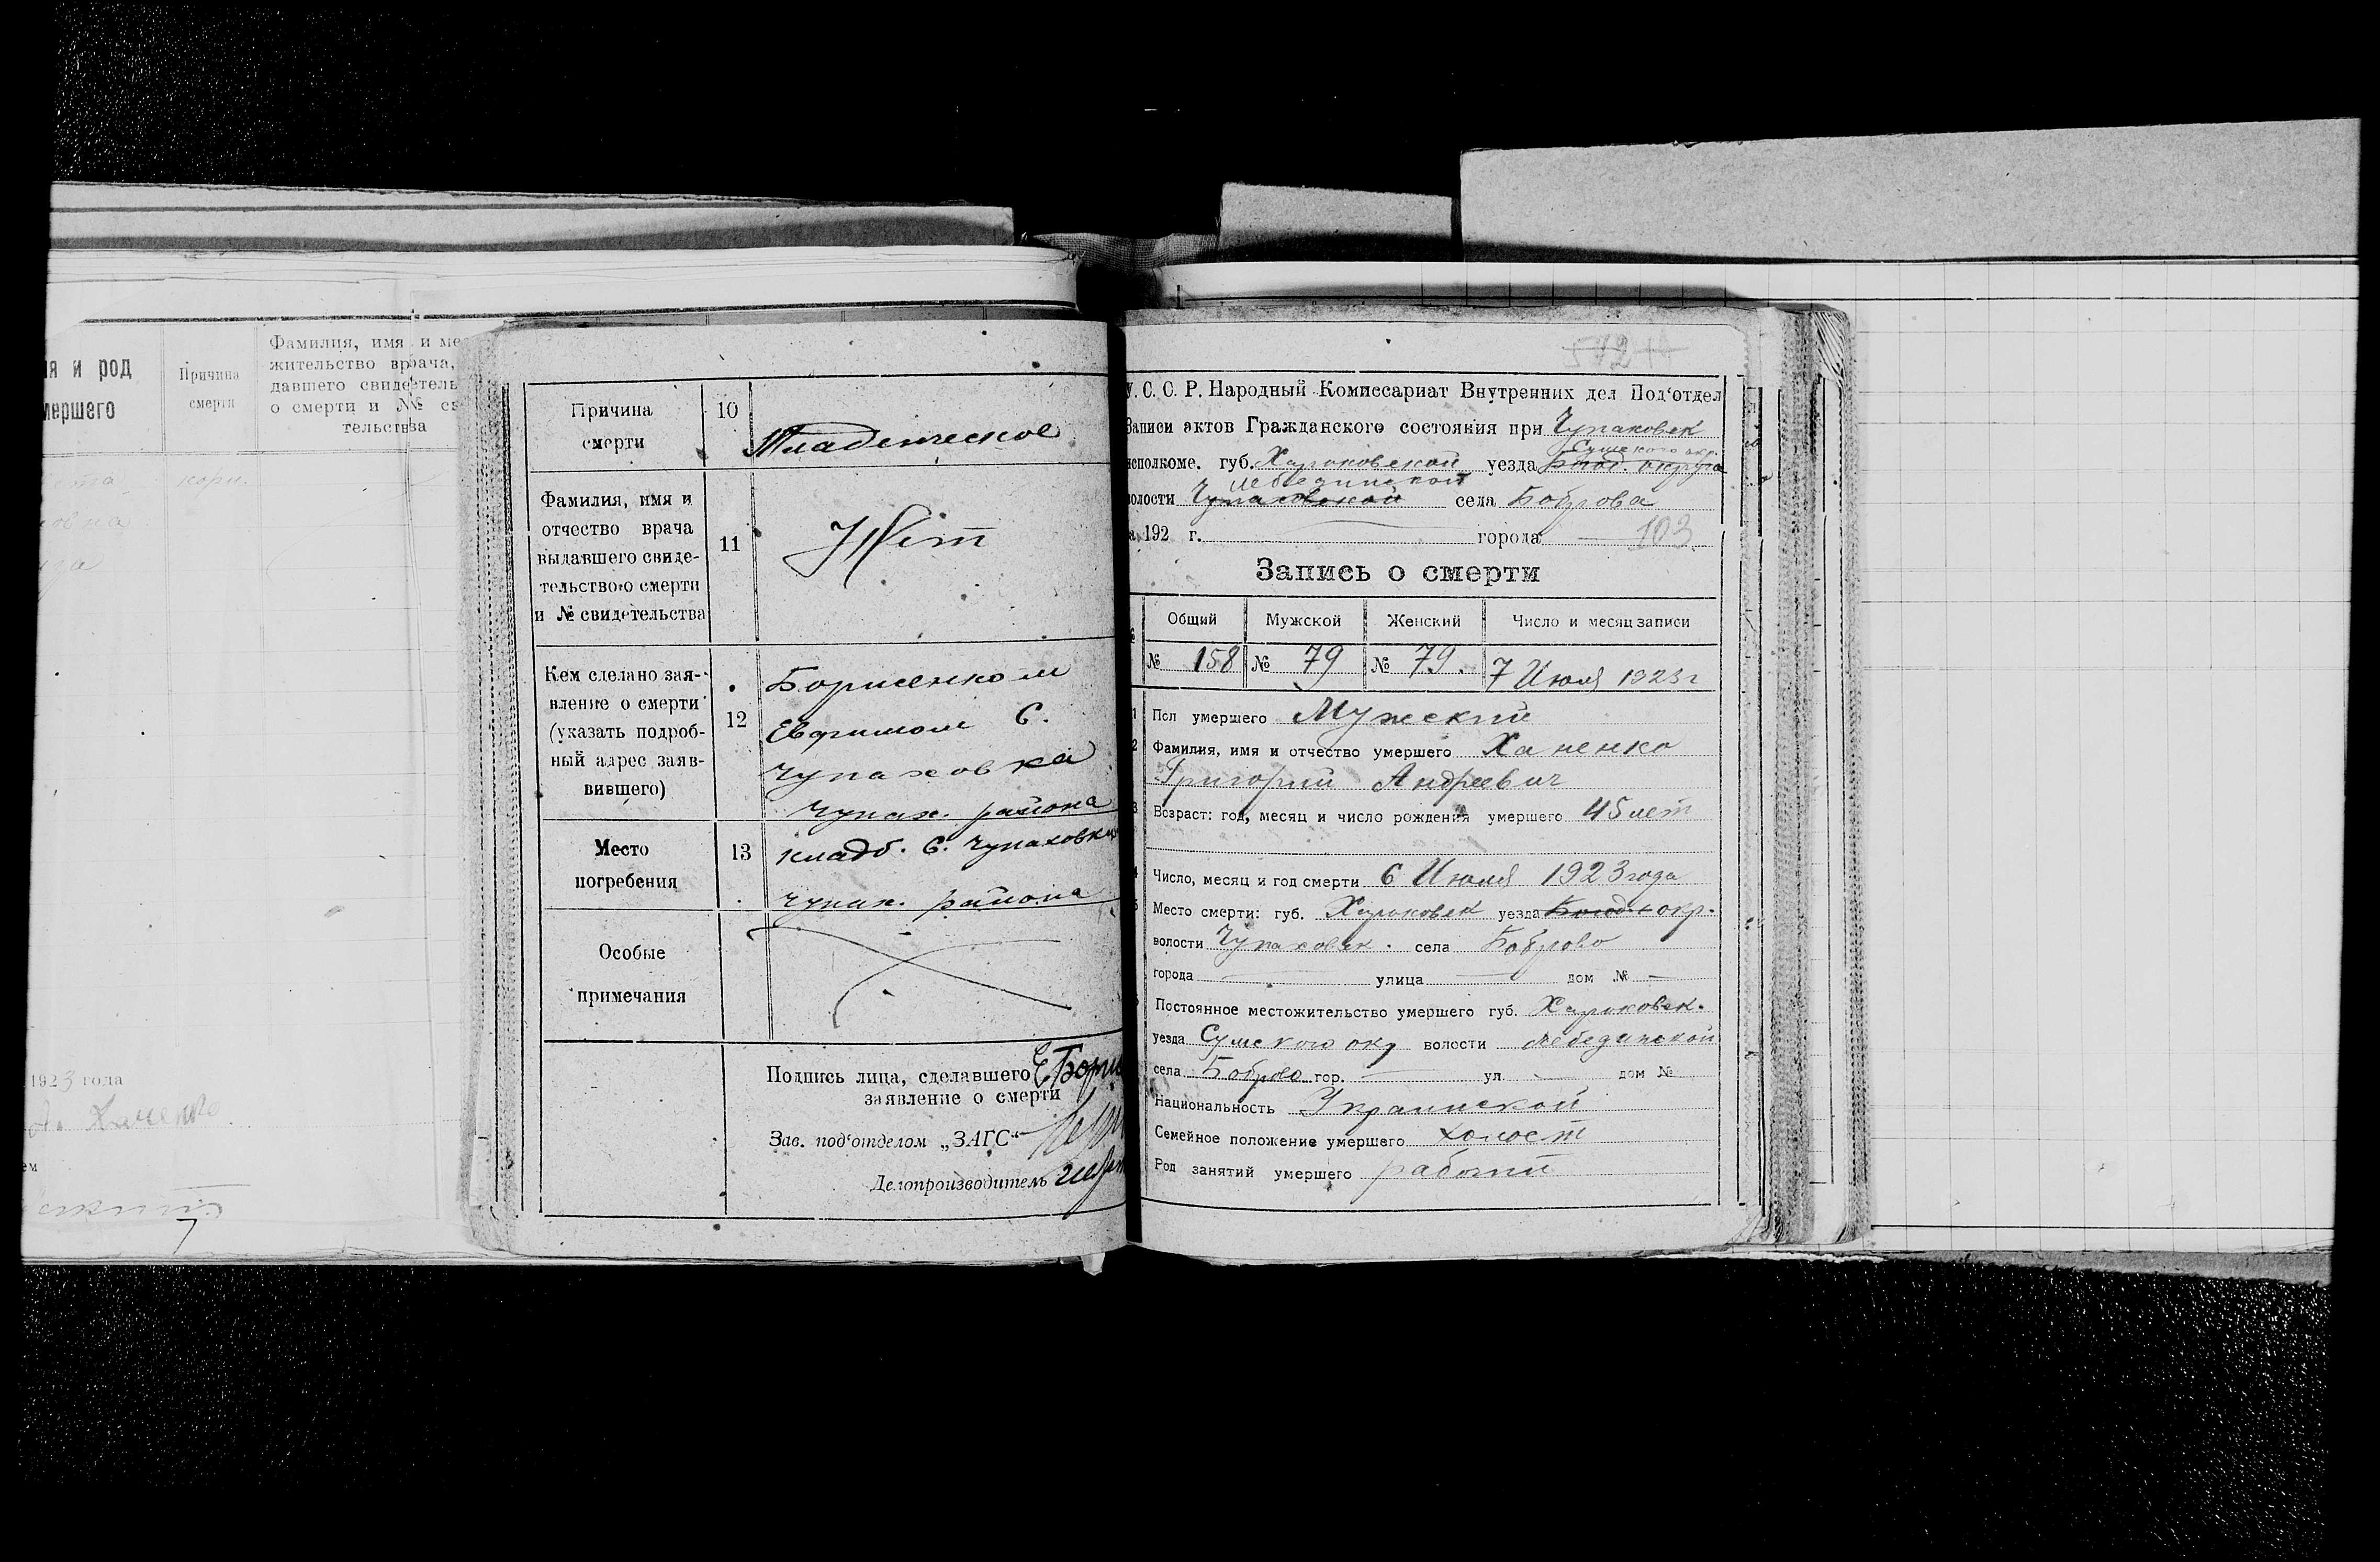 ия и род
умершего
Причина
смерти
Фамилия, имя и ме
жительство врача,
давшего свидетель
о смерти и №№ св
тельства
1923 года
Ханенко
Причина
смерти
10
Младенческое
Фамилия, имя и
отчество врача
выдавшего свиде-
тельство о смерти
и № свидетельства
11
Нет
Кем сделано зая-
вление о смерти
(указать подроб-
ный адрес заяв-
вившего)
12
Борисенком
Евфимом С.
Чупаховка
Чупах. района
Место
погребения
13
кладб. С. Чупаховки
Чупах. района
Особые
примечания
Подпись лица, сделавшего Е Бори
заявление о смерти
Зав. под'отделом „ЗАГС"
Делопроизводитель
У. С. С. Р. Народный Комиссариат Внутренних дел Под'отдел
Записи актов Гражданского состояния при Чупаховск
Сумского окр.
исполкоме. губ. Харьковской уезда Богод. округа
Лебединской
волости Чупаховской села Боброва
а 192 г. города 103
Запись о смерти
Общий Мужской Женский Число и месяц записи
№ 158 № 79 № 79. 7 Июля 1923 г
1 Пол умершего Мужский
2 Фамилия, имя и отчество умершего Ханенко
Григорий Андреевич
3 Возраст: год, месяц и число рождения умершего 45 лет
Число, месяц и год смерти 6 Июля 1923 года
Место смерти: губ. Харьковск уезда Богод. окр.
волости Чупаховск. села Боброво
города — улица — дом № —
Постоянное местожительство умершего губ. Харьковск.
уезда Сумского окр волости Лебединской
села Боброво гор. — ул — дом №
Национальность Украинской
Семейное положение умершего холост
Род занятий умершего рабочий